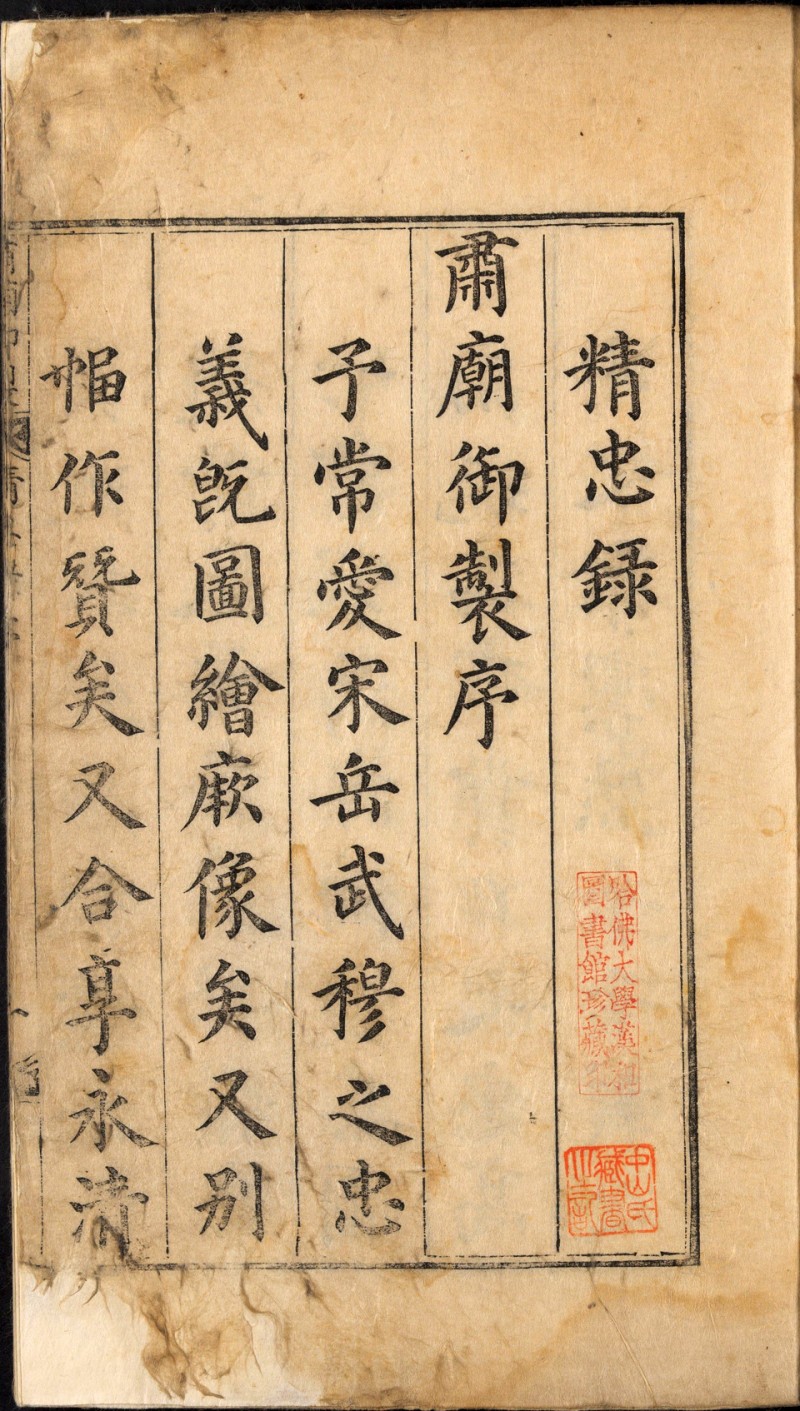 精忠録
肅廟御製序
予常愛宋岳武穆之忠
義旣圖繪厥像矣又別
幅作贊矣又合享永淸
哈佛大學漢和
圖書館珍藏印
中山氏
藏書
之記